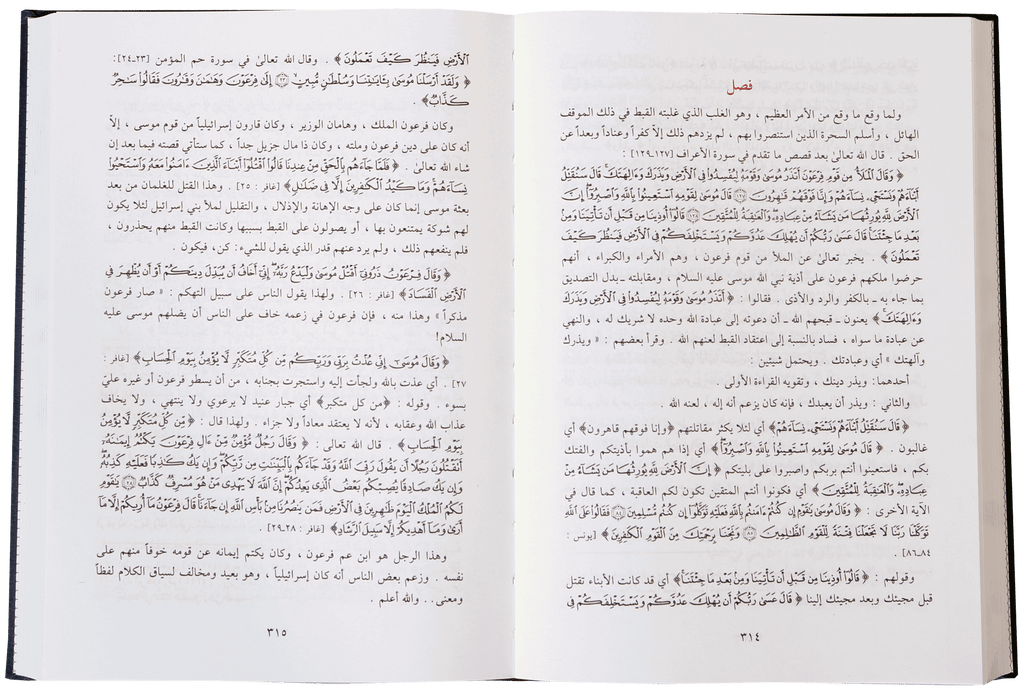 فصل
ولما وقع ما وقع من الأمر العظيم ، وهو الغلب الذي غلبته القبط في ذلك الموقف
الهائل ، وأسلم السحرة الذين استنصروا بهم ، لم يزدهم ذلك إلاّ كفراً وعناداً وبعداً عن
الحق . قال الله تعالىٰ بعد قصص ما تقدم في سورة الأعراف [١٢٧ـ١٢٩] :
﴿ وَقَالَ ٱلْمَلَأُ مِن قَوْمِ فِرْعَوْنَ أَتَذَرُ مُوسَىٰ وَقَوْمَهُۥ لِيُفْسِدُوا۟ فِى ٱلْأَرْضِ وَيَذَرَكَ وَءَالِهَتَكَ ۚ قَالَ سَنُقَتِّلُ
أَبْنَآءَهُمْ وَنَسْتَحْىِۦ نِسَآءَهُمْ وَإِنَّا فَوْقَهُمْ قَٰهِرُونَ ﴿١٢٧﴾ قَالَ مُوسَىٰ لِقَوْمِهِ ٱسْتَعِينُوا۟ بِٱللَّهِ وَٱصْبِرُوٓا۟ ۖ إِنَّ
ٱلْأَرْضَ لِلَّهِ يُورِثُهَا مَن يَشَآءُ مِنْ عِبَادِهِۦ ۖ وَٱلْعَٰقِبَةُ لِلْمُتَّقِينَ ﴿١٢٨﴾ قَالُوٓا۟ أُوذِينَا مِن قَبْلِ أَن تَأْتِيَنَا وَمِنۢ
بَعْدِ مَا جِئْتَنَا ۚ قَالَ عَسَىٰ رَبُّكُمْ أَن يُهْلِكَ عَدُوَّكُمْ وَيَسْتَخْلِفَكُمْ فِى ٱلْأَرْضِ فَيَنظُرَ كَيْفَ
تَعْمَلُونَ ﴾ . يخبر تعالىٰ عن الملأ من قوم فرعون ، وهم الأمراء والكبراء ، أنهم
حرضوا ملكهم فرعون على أذية نبي الله موسى عليه السلام ، ومقابلته ـ بدل التصديق
بما جاء به ـ بالكفر والرد والأذى . فقالوا : ﴿ أَتَذَرُ مُوسَىٰ وَقَوْمَهُۥ لِيُفْسِدُوا۟ فِى ٱلْأَرْضِ وَيَذَرَكَ
وَءَالِهَتَكَ ﴾ يعنون ـ قبحهم الله ـ أن دعوته إلى عبادة الله وحده لا شريك له ، والنهي
عن عبادة ما سواه ، فساد بالنسبة إلى اعتقاد القبط لعنهم الله . وقرأ بعضهم : « ويذرك
وآلهتك » أي وعبادتك . ويحتمل شيئين :
أحدهما : ويذر دينك ، وتقويه القراءة الأولى .
والثاني : ويذر أن يعبدك ، فإنه كان يزعم أنه إله ، لعنه الله .
﴿ قَالَ سَنُقَتِّلُ أَبْنَآءَهُمْ وَنَسْتَحْىِۦ نِسَآءَهُمْ ﴾ أي لئلا يكثر مقاتلتهم ﴿وإنا فوقهم قاهرون﴾ أي
غالبون . ﴿ قَالَ مُوسَىٰ لِقَوْمِهِ ٱسْتَعِينُوا۟ بِٱللَّهِ وَٱصْبِرُوٓا۟ ﴾ أي إذا هم هموا بأذيتكم والفتك
بكم ، فاستعينوا أنتم بربكم واصبروا على بليتكم ﴿ إِنَّ ٱلْأَرْضَ لِلَّهِ يُورِثُهَا مَن يَشَآءُ مِنْ
عِبَادِهِۦ ۖ وَٱلْعَٰقِبَةُ لِلْمُتَّقِينَ ﴾ أي فكونوا أنتم المتقين تكون لكم العاقبة ، كما قال في
الآية الأخرى : ﴿ وَقَالَ مُوسَىٰ يَٰقَوْمِ إِن كُنتُمْ ءَامَنتُم بِٱللَّهِ فَعَلَيْهِ تَوَكَّلُوٓا۟ إِن كُنتُم مُّسْلِمِينَ ﴿٨٤﴾ فَقَالُوا۟ عَلَى ٱللَّهِ
تَوَكَّلْنَا رَبَّنَا لَا تَجْعَلْنَا فِتْنَةً لِّلْقَوْمِ ٱلظَّٰلِمِينَ ﴿٨٥﴾ وَنَجِّنَا بِرَحْمَتِكَ مِنَ ٱلْقَوْمِ ٱلْكَٰفِرِينَ ﴾ [يونس :
٨٤ـ٨٦] .
وقولهم : ﴿ قَالُوٓا۟ أُوذِينَا مِن قَبْلِ أَن تَأْتِيَنَا وَمِنۢ بَعْدِ مَا جِئْتَنَا ﴾ أي قد كانت الأبناء تقتل
قبل مجيئك وبعد مجيئك إلينا ﴿ قَالَ عَسَىٰ رَبُّكُمْ أَن يُهْلِكَ عَدُوَّكُمْ وَيَسْتَخْلِفَكُمْ فِى
٣١٤
ٱلْأَرْضِ فَيَنظُرَ كَيْفَ تَعْمَلُونَ ﴾ . وقال الله تعالىٰ في سورة حم المؤمن [٢٣ـ٢٤] :
﴿ وَلَقَدْ أَرْسَلْنَا مُوسَىٰ بِـَٔايَٰتِنَا وَسُلْطَٰنٍ مُّبِينٍ ﴿٢٣﴾ إِلَىٰ فِرْعَوْنَ وَهَٰمَٰنَ وَقَٰرُونَ فَقَالُوا۟ سَٰحِرٌ
كَذَّابٌ ﴾ .
وكان فرعون الملك ، وهامان الوزير ، وكان قارون إسرائيلياً من قوم موسى ، إلاّ
أنه كان على دين فرعون وملئه ، وكان ذا مال جزيل جداً ، كما ستأتي قصته فيما بعد إن
شاء الله تعالىٰ . ﴿ فَلَمَّا جَآءَهُم بِٱلْحَقِّ مِنْ عِندِنَا قَالُوا۟ ٱقْتُلُوٓا۟ أَبْنَآءَ ٱلَّذِينَ ءَامَنُوا۟ مَعَهُۥ وَٱسْتَحْيُوا۟
نِسَآءَهُمْ ۚ وَمَا كَيْدُ ٱلْكَٰفِرِينَ إِلَّا فِى ضَلَٰلٍ ﴾ [غافر : ٢٥] . وهذا القتل للغلمان من بعد
بعثة موسى إنما كان على وجه الإهانة والإذلال ، والتقليل لملأ بني إسرائيل لئلا يكون
لهم شوكة يمتنعون بها ، أو يصولون على القبط بسببها وكانت القبط منهم يحذرون ،
فلم ينفعهم ذلك ، ولم يرد عنهم قدر الذي يقول للشيء : كن، فيكون .
﴿ وَقَالَ فِرْعَوْنُ ذَرُونِىٓ أَقْتُلْ مُوسَىٰ وَلْيَدْعُ رَبَّهُۥٓ ۖ إِنِّىٓ أَخَافُ أَن يُبَدِّلَ دِينَكُمْ أَوْ أَن يُظْهِرَ فِى
ٱلْأَرْضِ ٱلْفَسَادَ ﴾ [غافر : ٢٦] . ولهذا يقول الناس على سبيل التهكم : « صار فرعون
مذكراً » وهذا منه ، فإن فرعون في زعمه خاف على الناس أن يضلهم موسى عليه
السلام!
﴿ وَقَالَ مُوسَىٰٓ إِنِّى عُذْتُ بِرَبِّى وَرَبِّكُم مِّن كُلِّ مُتَكَبِّرٍ لَّا يُؤْمِنُ بِيَوْمِ ٱلْحِسَابِ﴾ [غافر :
٢٧] . أي عذت بالله ولجأت إليه واستجرت بجنابه ، من أن يسطو فرعون أو غيره عليّ
بسوء . وقوله : ﴿من كل متكبر﴾ أي جبار عنيد لا يرعوي ولا ينتهي ، ولا يخاف
عذاب الله وعقابه ، لأنه لا يعتقد معاداً ولا جزاء . ولهذا قال : ﴿ مِّن كُلِّ مُتَكَبِّرٍ لَّا يُؤْمِنُ
بِيَوْمِ ٱلْحِسَابِ ﴾ . قال الله تعالى : ﴿ وَقَالَ رَجُلٌ مُّؤْمِنٌ مِّنْ ءَالِ فِرْعَوْنَ يَكْتُمُ إِيمَٰنَهُۥٓ
أَتَقْتُلُونَ رَجُلًا أَن يَقُولَ رَبِّىَ ٱللَّهُ وَقَدْ جَآءَكُم بِٱلْبَيِّنَٰتِ مِن رَّبِّكُمْ ۖ وَإِن يَكُ كَٰذِبًا فَعَلَيْهِ كَذِبُهُۥ ۖ
وَإِن يَكُ صَادِقًا يُصِبْكُم بَعْضُ ٱلَّذِى يَعِدُكُمْ ۖ إِنَّ ٱللَّهَ لَا يَهْدِى مَنْ هُوَ مُسْرِفٌ كَذَّابٌ ﴿٢٨﴾ يَٰقَوْمِ
لَكُمُ ٱلْمُلْكُ ٱلْيَوْمَ ظَٰهِرِينَ فِى ٱلْأَرْضِ فَمَن يَنصُرُنَا مِنۢ بَأْسِ ٱللَّهِ إِن جَآءَنَا ۚ قَالَ فِرْعَوْنُ مَآ أُرِيكُمْ إِلَّا مَآ
أَرَىٰ وَمَآ أَهْدِيكُمْ إِلَّا سَبِيلَ ٱلرَّشَادِ ﴾ [غافر : ٢٨ـ٢٩] .
وهذا الرجل هو ابن عم فرعون ، وكان يكتم إيمانه عن قومه خوفاً منهم على
نفسه . وزعم بعض الناس أنه كان إسرائيلياً ، وهو بعيد ومخالف لسياق الكلام لفظاً
ومعنى . . والله أعلم .
٣١٥